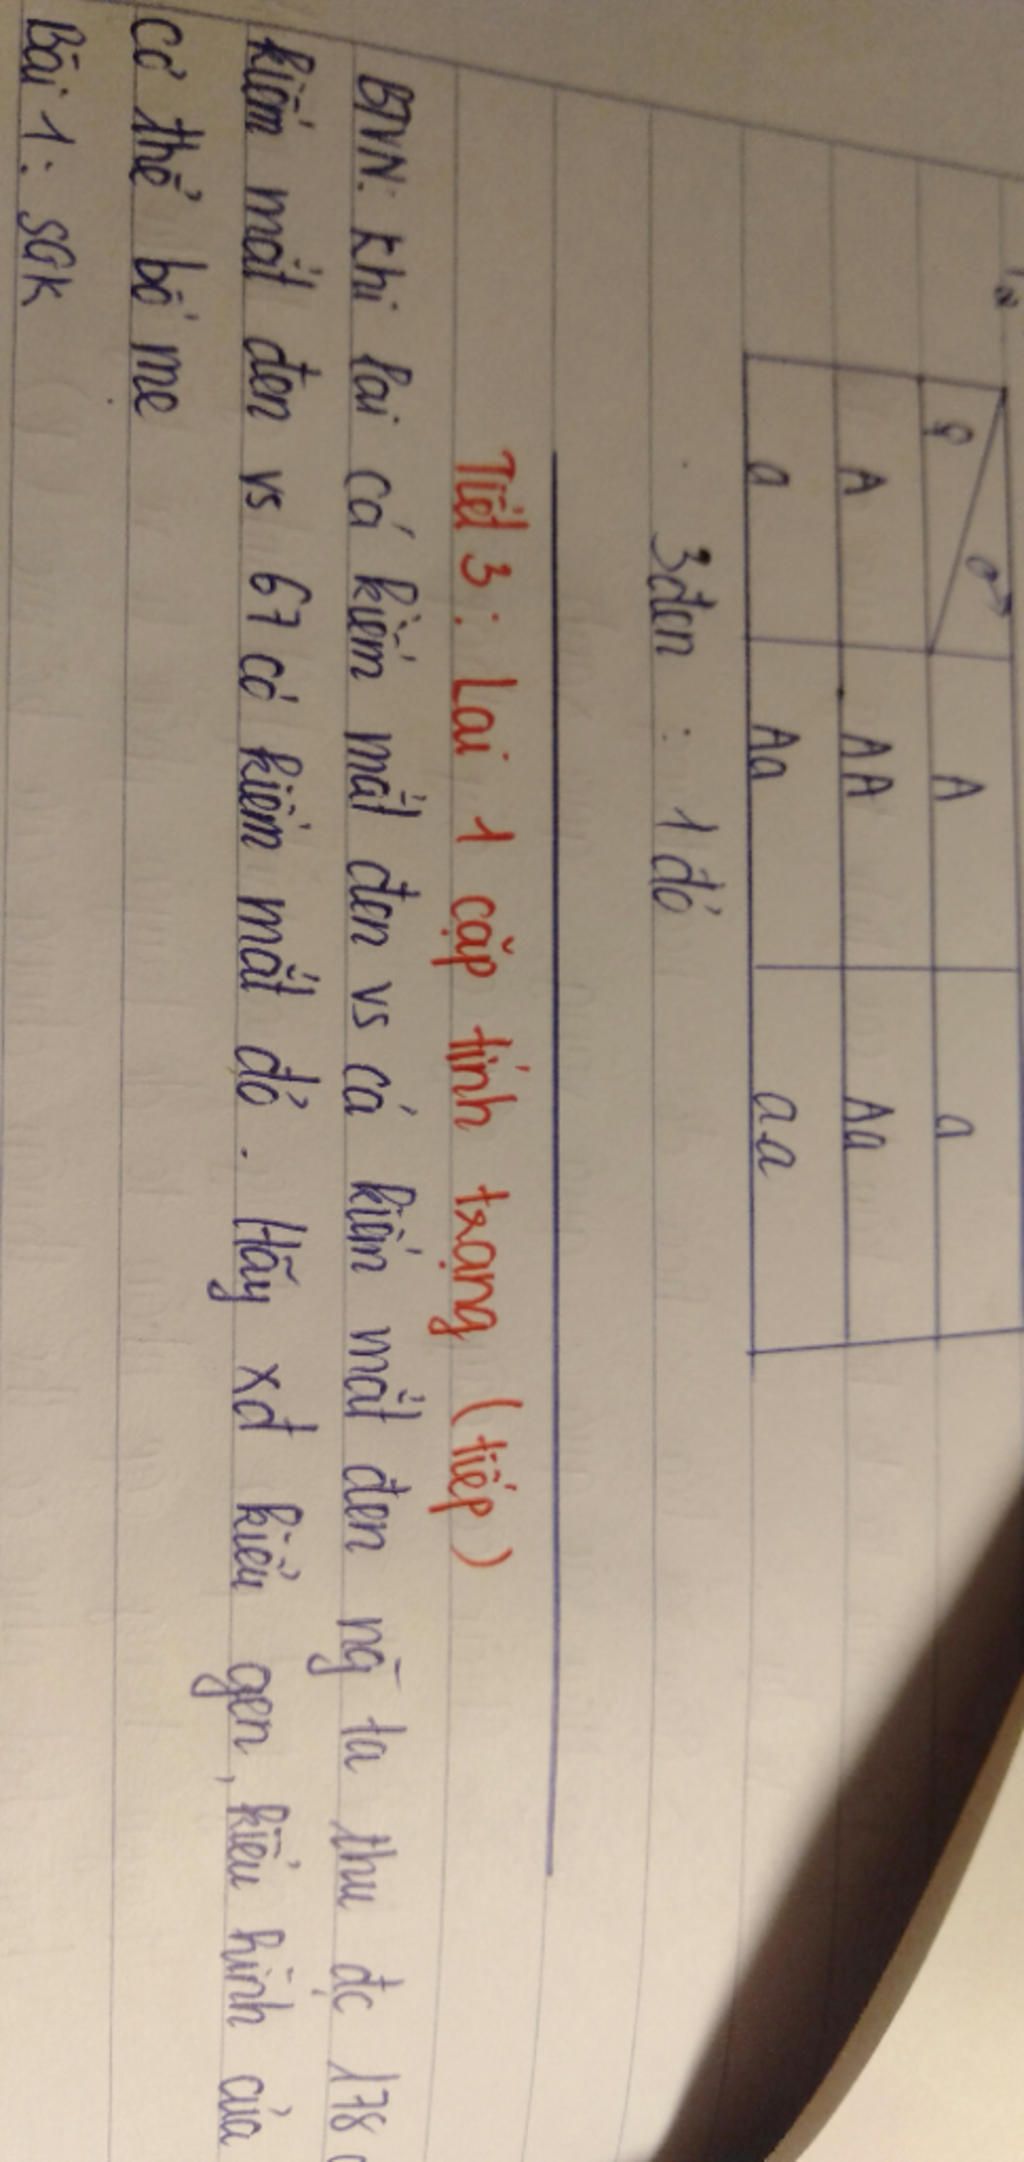 ♀ ♂ A a
A AA Aa
a Aa aa
3đen : 1 đỏ
Tiết 3 : Lai 1 cặp tính trạng (tiếp)
BTVN: Khi lai cá kiếm mắt đen vs cá kiếm mắt đen ng` ta thu đc 178 c
kiếm mắt đen vs 67 cá kiếm mắt đỏ. Hãy xđ kiểu gen, kiểu hình của
cơ thể bố mẹ
Bài 1: SGK